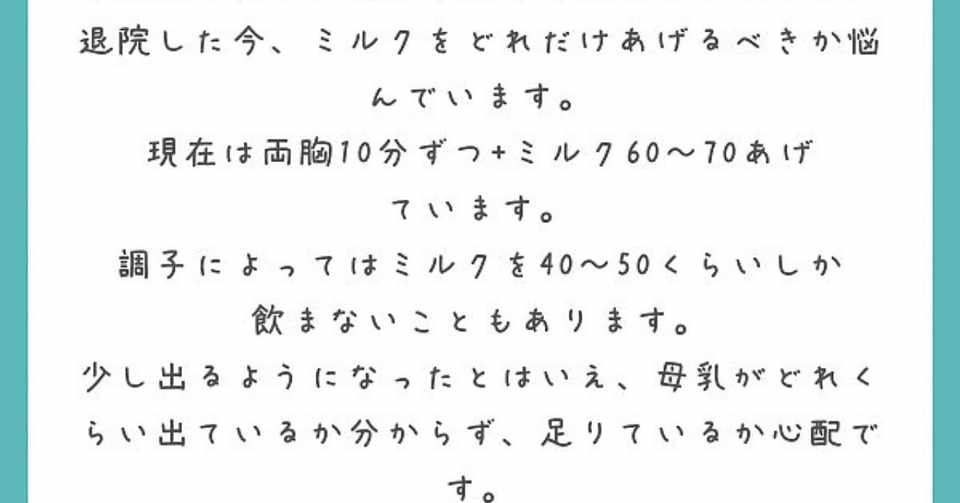 退院した今、ミルクをどれだけあげるべきか悩
んでいます。
現在は両胸10分ずつ+ミルク60〜70あげ
ています。
調子によってはミルクを40〜50くらいしか
飲まないこともあります。
少し出るようになったとはいえ、母乳がどれく
らい出ているか分からず、足りているか心配で
す。